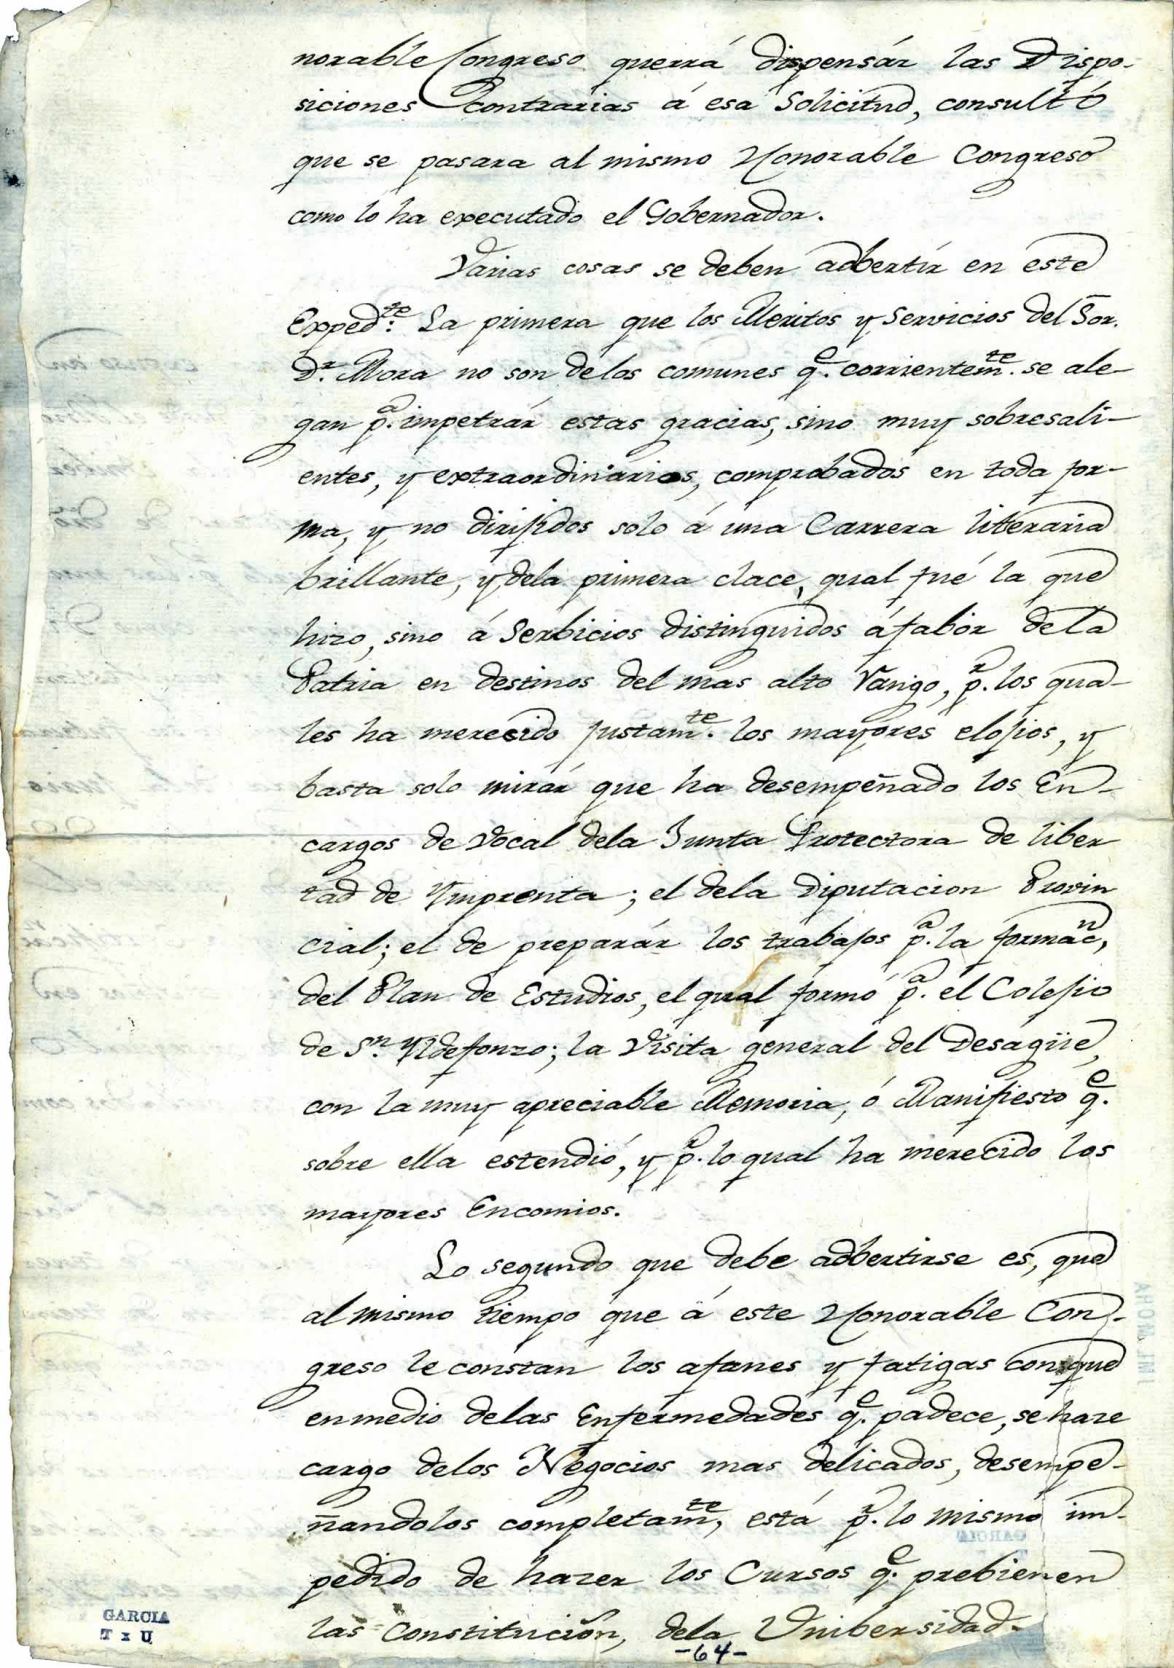 norable Congreso querrá dispensár las Dispo-
siciones contrarias á esa Solicitud, consultó
que se pasara al mismo Honorable Congreso
como lo ha executado el Gobernador.
Varias cosas se deben adbertír en este
Exped.te La primera que los Meritos y Servicios del Sor.
D.r Mora no son delos comunes q.e corrientem.te se ale-
gan p.a impetrár estas gracias, sino muy sobresali-
entes, y extraordinarios, comprobados en toda for-
ma, y no dirijidos solo á una Carrera literaria
brillante, y dela primera clace, qual fué la que
hizo, sino á Serbicios distinguidos á fabór dela
Patria en destinos del mas alto Rango, p.r los qua-
les ha merecido justam.te los mayores elojios, y
basta solo mirár que ha desempeñado los En-
cargos de Vocal dela Junta Protectora de liber
tad de Ymprenta; el dela Diputacion Provin
cial; el de preparár los trabajos p.a la formac.n,
del Plan de Estudios, el qual formó p.a el Colejio
de S.n Yldefonzo; la Visita general del Desagüe,
con la muy apreciable Memoria, ó Manifiesto q.e
sobre ella estendió, y p.r lo qual ha merecido los
mayores Encomios.
Lo segundo que debe adbertirse es, que
al mismo tiempo que á este Honorable Con-
greso le constan los afanes y fatigas conque
enmedio delas Enfermedades q.e padece, se haze
cargo delos Negocios mas delicados, desempe-
ñandolos completam.te, está p.r lo mismo im-
pedido de hazer los Cursos q.e prebienen
las Constitución, dela Unibersidad.
-64-
GARCIA